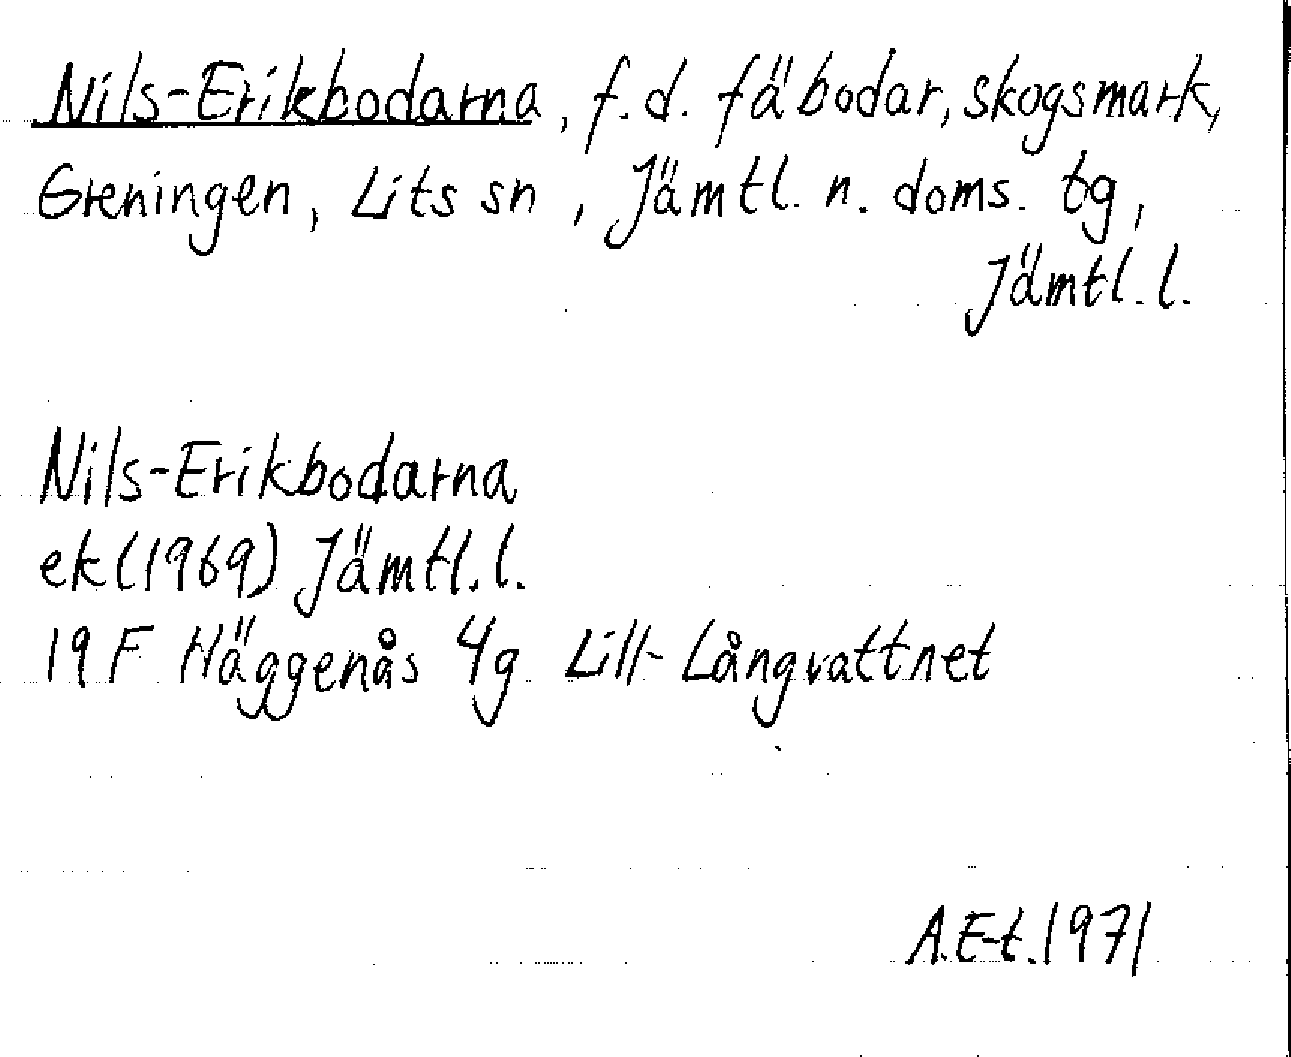 Nils-Erikbodarna, f.d. fäbodar, skogsmark,
Greningen, Lits sn, Jämtl. n. doms. tg,
Jämtl. l.
Nils-Erikbodarna
ek (1969) Jämtl. l.
19 F Häggenås 4g Lill-Långvattnet
A.E-t. 1971